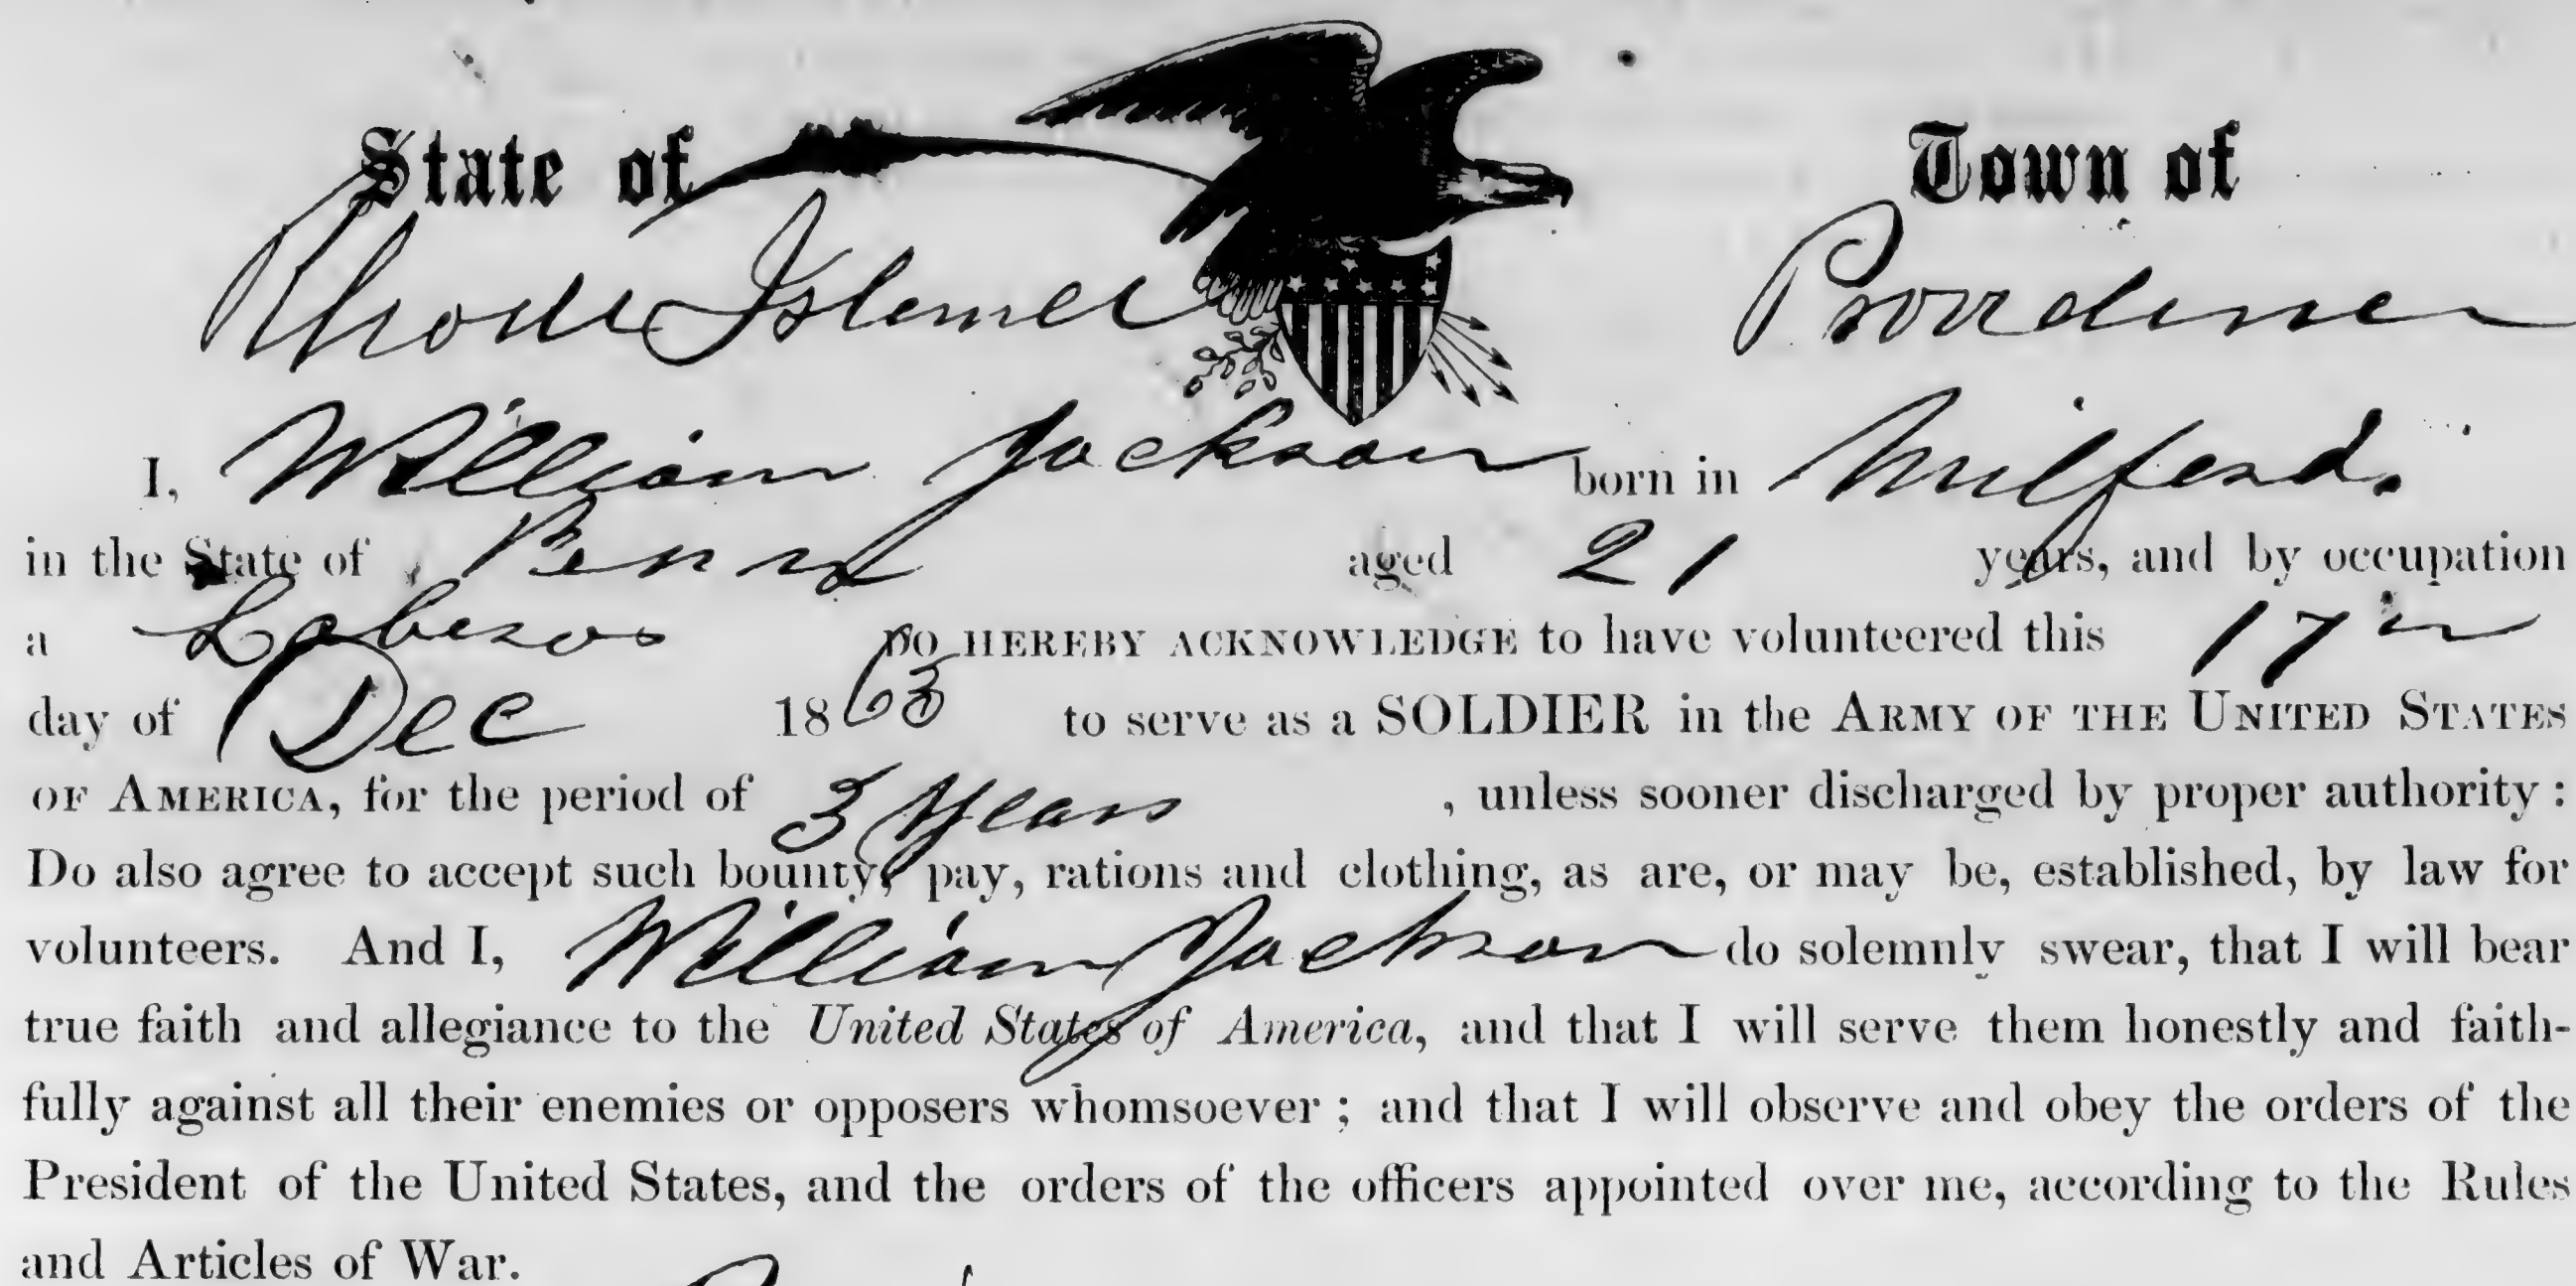 State of Town of
Rhode Island Providence
I, William Jackson born in Milford.
in the State of Penn aged 21 years, and by occupation
a Laborer DO HEREBY ACKNOWLEDGE to have volunteered this 17th
day of Dec 1863 to serve as a SOLDIER in the ARMY OF THE UNITED STATES
OF AMERICA, for the period of 3 Years, unless sooner discharged by proper authority:
Do also agree to accept such bounty, pay, rations and clothing, as are, or may be, established, by law for
volunteers. And I, William Jackson do solemnly swear, that I will bear
true faith and allegiance to the United States of America, and that I will serve them honestly and faith-
fully against all their enemies or opposers whomsoever; and that I will observe and obey the orders of the
President of the United States, and the orders of the officers appointed over me, according to the Rules
and Articles of War.